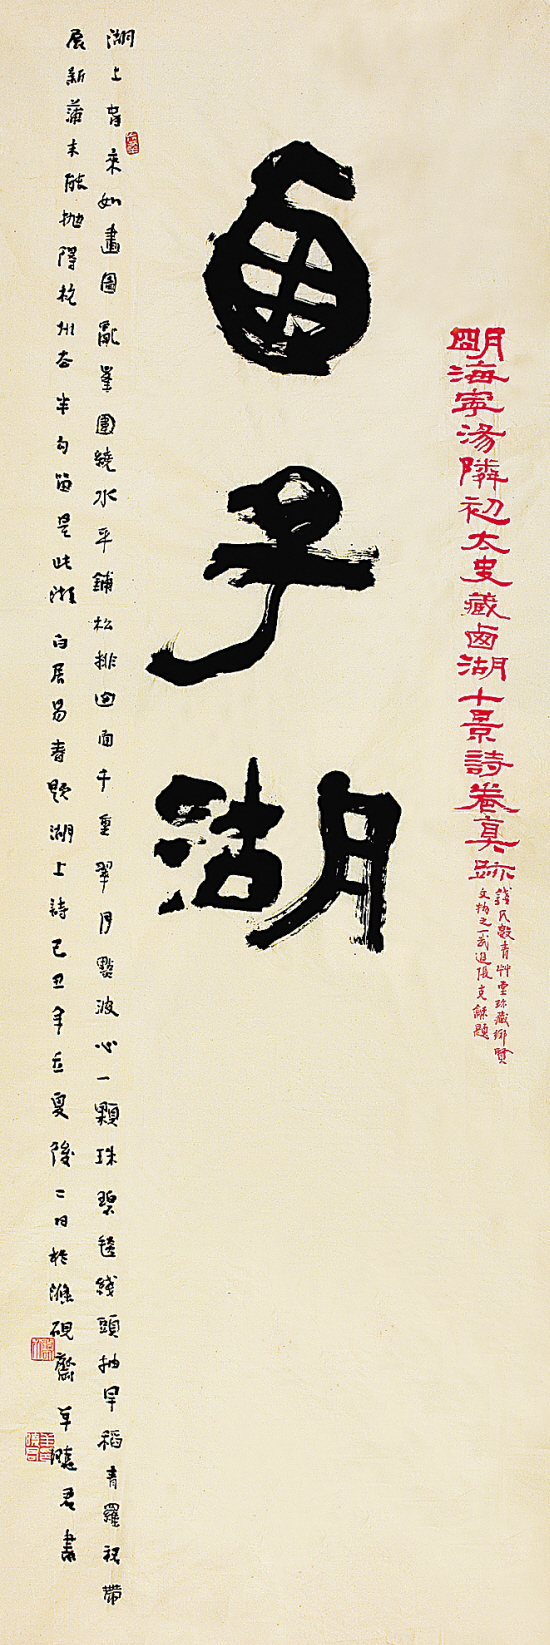 明海寧湯隣初太史藏西湖十景詩卷真跡
錢氏數青艸堂珍藏鄉賢
文物之一武進張克龢題
西子湖
湖上春來如畫圖亂峯圍繞水平鋪松排面面千重翠月點波心一顆珠碧毯綫頭抽早稻青羅裙帶
展新蒲未能拋得杭州去半勾留是此湖白居易春題湖上詩己丑年立夏後二日於硯齋草君書